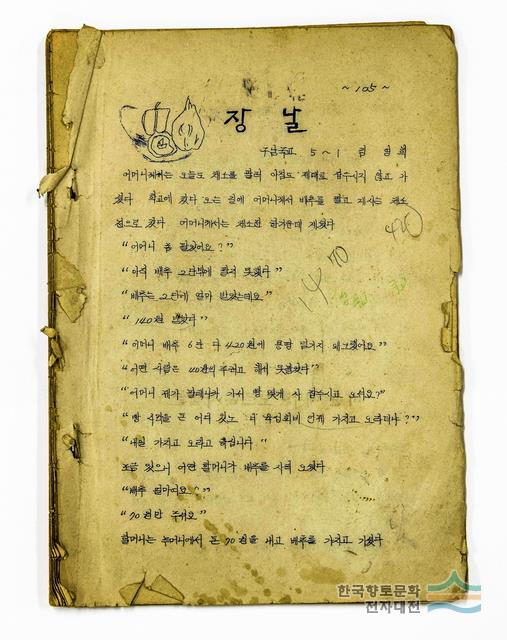 ~ 105 ~
장 날
구남국교 5~1 김 형희
어머니께서는 오늘도 채소를 팔러 아침도 제대로 잡수시지 않고 가
셨다 학교에 갔다 오는 길에 어머니께서 배추를 팔고 계시는 채소
전으로 갔다 어머니께서는 채소전 한가운데 계셨다
"어머니 좀 팔았어요?"
"아직 배추 2단밖에 팔지 못했다"
"배추는 2단에 얼마 받았는데요"
"140원 받았다"
"어머니 배추 6단 다 420원에 몽땅 넘기지 왜그랬어요"
"어떤 사람은 40원의 주려고 해서 못팔았다"
"어머니 제가 팔테니까 가서 빵 몇개 사 잡수시고 오셔요?"
"빵 사먹을 돈 어디 있노 너 육성회비 언제 가지고 오라더냐?"
"내일 가지고 오라고 했습니다"
조금 있으니 어떤 할머니가 배추를 사러 오셨다
"배추 얼마여요"
"70원만 주셔요"
할머니는 주머니에서 돈 70원을 내고 배추를 가지고 가셨다
420
14 70
한국향토문화
전자대전